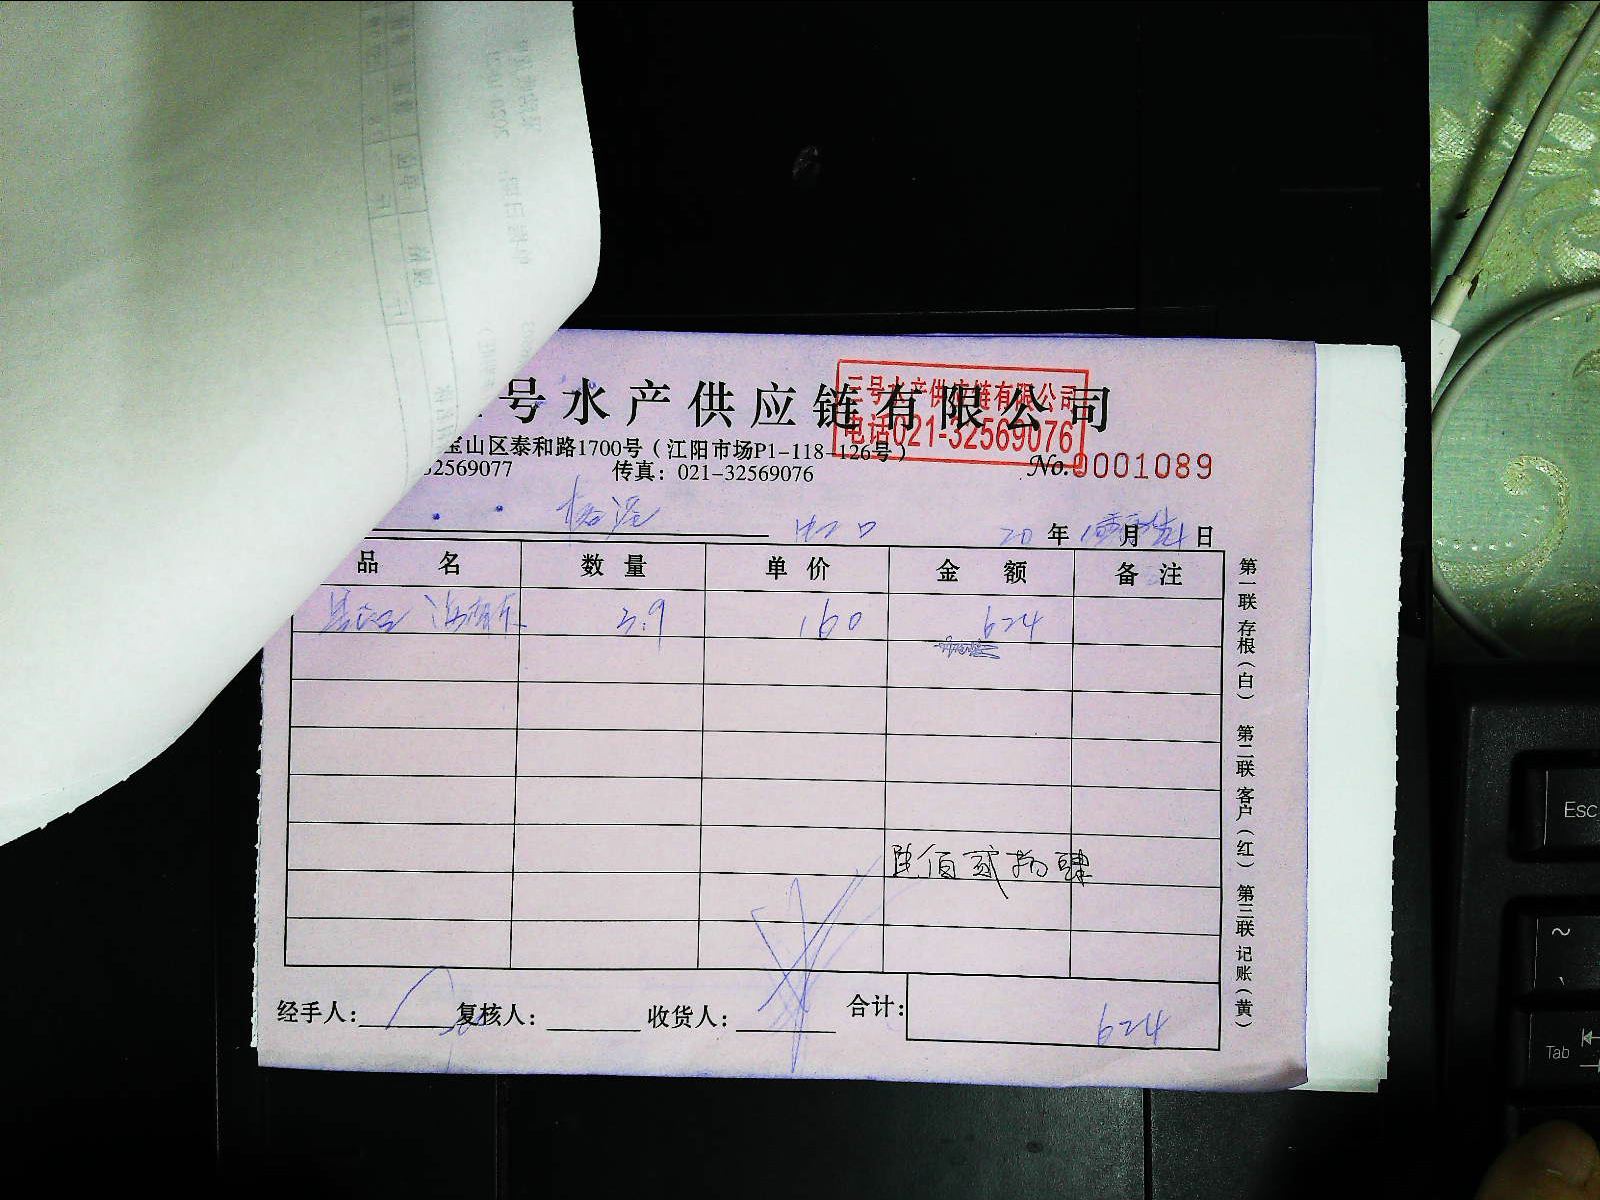 号水产供应链有限公司
三号水产供应链有限公司
电话021-32569076
宝山区泰和路1700号（江阳市场P1-118-126号）
32569077 传真：021-32569076
No.0001089
20 年 月 日
品名 数量 单价 金额 备注
3.9 160 624
陆佰贰拾肆
经手人： 复核人： 收货人： 合计： 624
第一联 存根（白） 第二联 客户（红） 第三联 记账（黄）
Esc
~
Tab